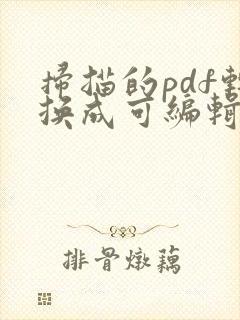 掃描的pdf轉
換成可編輯
排骨燉藕